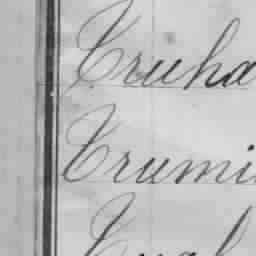 Truha
Trumi